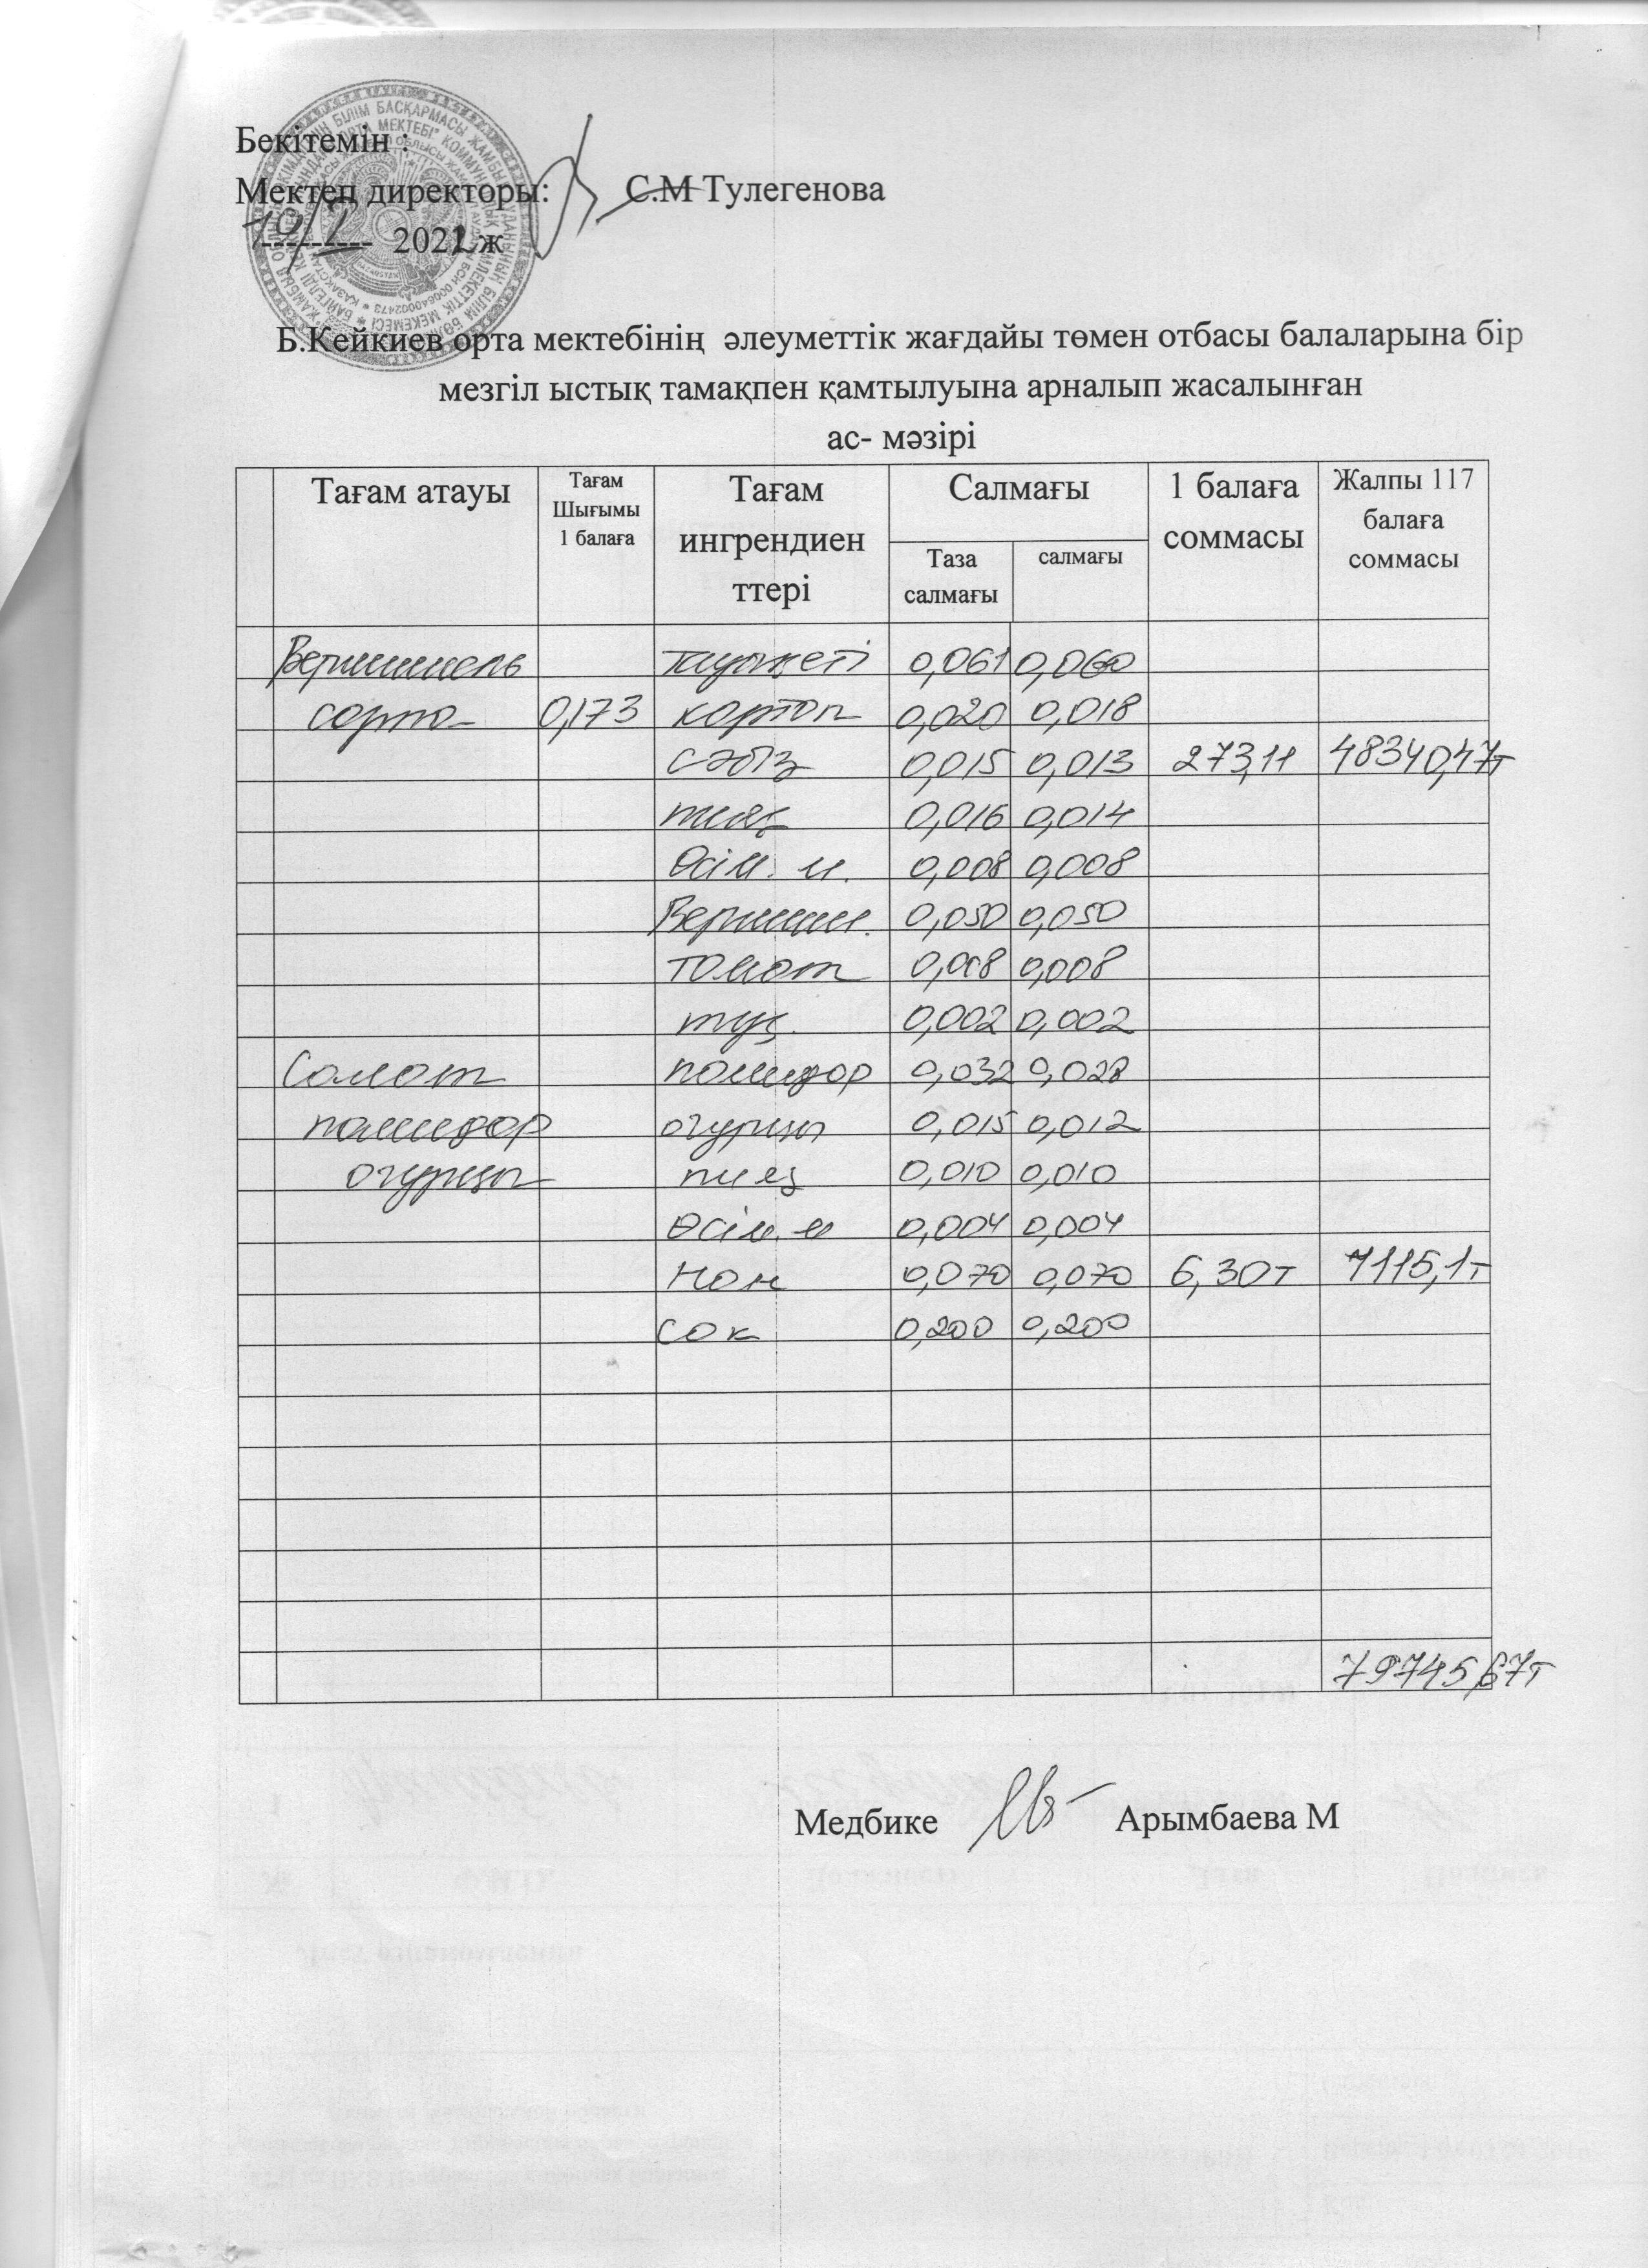 Бекітемін :
Мектеп директоры: С.М Тулегенова
--------- 2022 ж
Б.Кейкиев орта мектебінің әлеуметтік жағдайы төмен отбасы балаларына бір
мезгіл ыстық тамақпен қамтылуына арналып жасалынған
ас- мәзірі
Тағам атауы
Тағам
Шығымы
1 балаға
Тағам
ингрендиен
ттері
Салмағы
Таза
салмағы
салмағы
1 балаға
соммасы
Жалпы 117
балаға
соммасы
Вермишель тауықеті 0,061 0,060
сорпа 0,173 картоп 0,020 0,018
сәбіз 0,015 0,013 273,11 48340,47т
пияз 0,016 0,014
Өсім. м. 0,008 0,008
Вермиш. 0,050 0,050
томат 0,008 0,008
тұз. 0,002 0,002
Салат помидор 0,032 0,028
помидор огурцы 0,015 0,012
огурцы пияз 0,010 0,010
Өсім. м 0,004 0,004
Нан 0,070 0,070 6,30т 1115,1т
сок 0,200 0,200
79745,67т
Медбике Арымбаева М